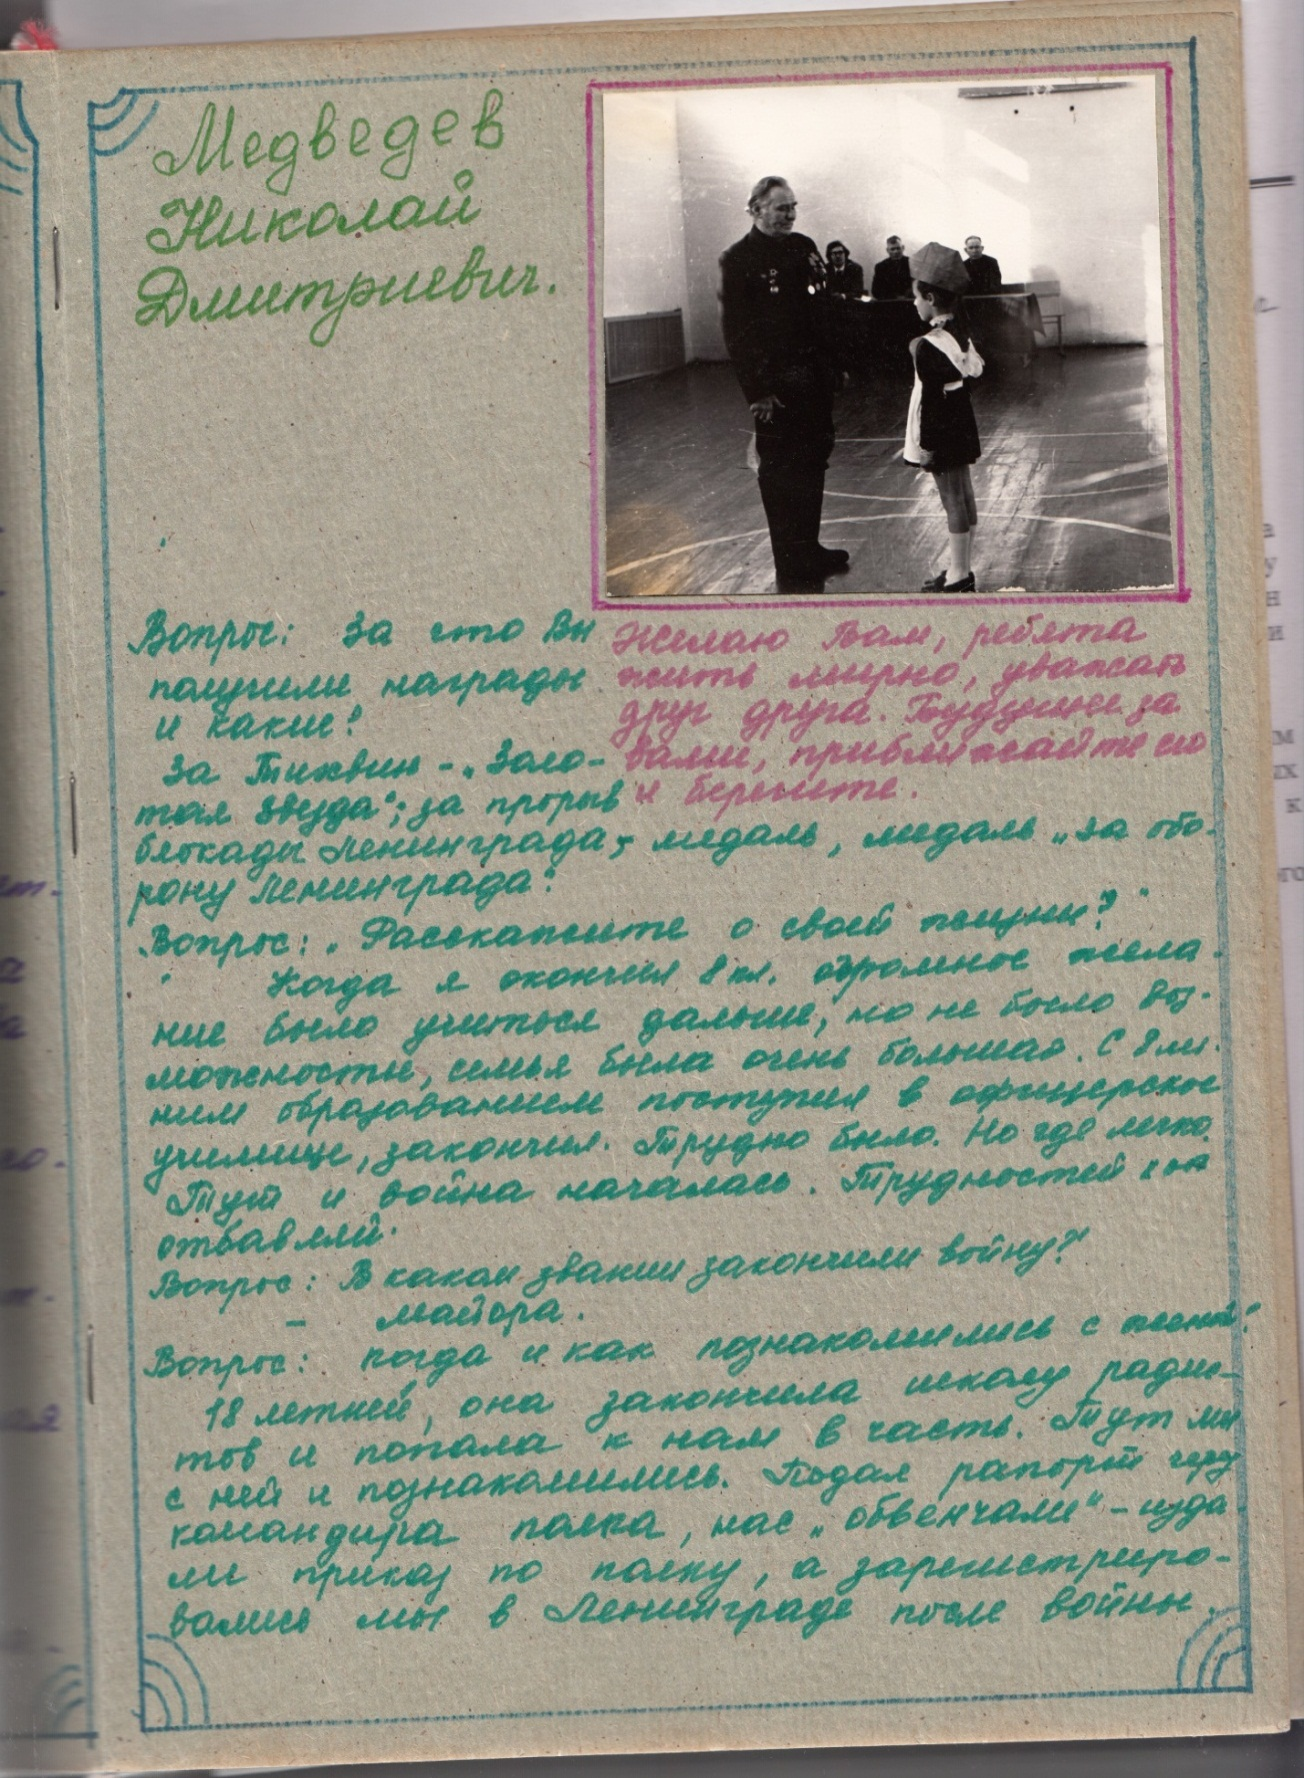 Медведев
Николай
Дмитриевич.
Вопрос: За что Вы
получили награды
и какие?
За Тихвин - „Золо-
тая Звезда"; за прорыв
блокады Ленинграда, медаль, медаль „За обо-
рону Ленинграда".
Желаю Вам, ребята
жить мирно, уважать
друг друга. Будущее за
вами, приближайте его
и берегите.
Вопрос: „Расскажите о своей жизни?"
Когда я окончил 8 кл. огромное жела-
ние было учиться дальше, но не было воз-
можности, семья была очень большая. С 8 ми.
ним образованием поступил в офицерское
училище, закончил. Трудно было. Но где легко.
Тут и война началась. Трудностей хоть
отбавляй.
Вопрос: В каком звании закончили войну?
- майора.
Вопрос: когда и как познакомились с женой?
18 летней, она закончила школу радис-
тов и попала к нам в часть. Тут мы
с ней и познакомились. Подал рапорт через
командира полка, нас „обвенчали" - изда
ли приказ по полку, а зарегистриро-
вались мы в Ленинграде после войны.